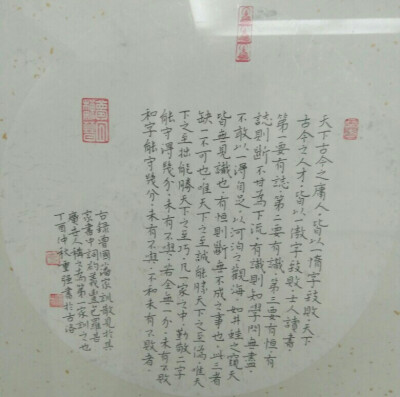 天下古今之庸人,皆以一惰字致敗,天下
古今之人才,皆以一傲字致敗,士人讀書
第一要有誌,第二要有識,第三要有恒,有
誌則斷不甘為下流,有識則知學問無盡,
不敢以一得自足,以河泊之觀海,如井蛙之窺天
皆無見識也,有恒則斷無不成之事也,此三者
缺一不可也,唯天下之至誠能勝天下之至偽,唯天
下之至拙能勝天下之至巧,凡一家之中,勤敬二字
能守得幾分,未有不興,若全無一分,未有不敗
和字能守幾分,未有不興,不和未有不敗者
右錄曾國藩家訓散見於其
家書中詞約義
世人稱之 第一家訓之也
丁酉仲秋 書於古洛